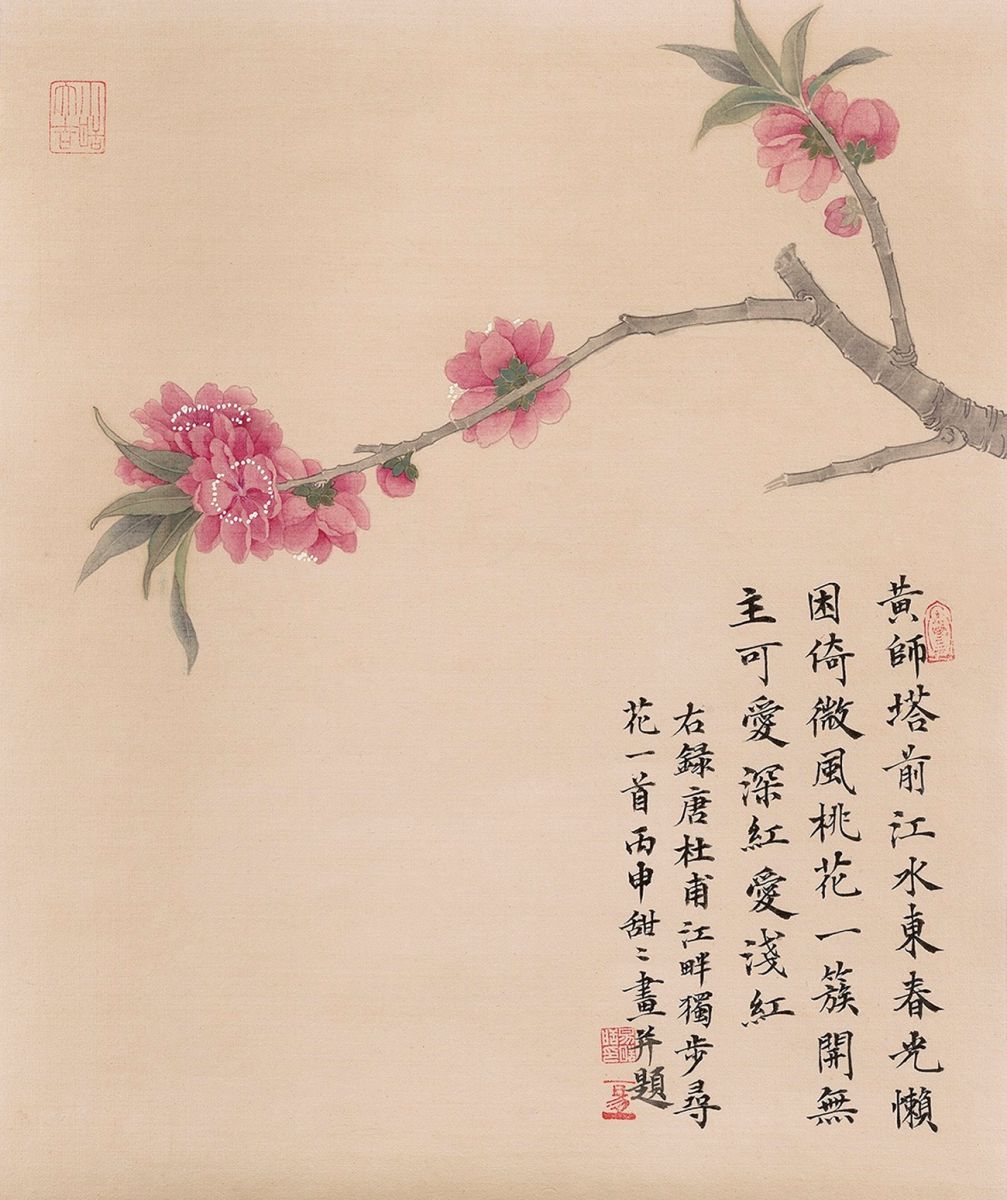 黃師塔前江水東春光懶
困倚微風桃花一簇開無
主可愛深紅愛淺紅
右録唐杜甫江畔獨步尋
花一首丙申甜〻畫并題